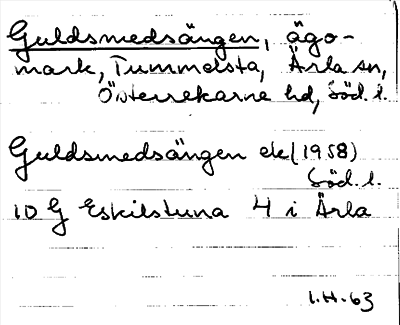 Guldsmedsängen, ägo-
mark, Tummelsta, Ärla sn,
Österrekarne hd, Söd. l.
Guldsmedsängen ek (1958)
Söd. l.
10 G Eskilstuna 4 i Ärla
I.H. 63